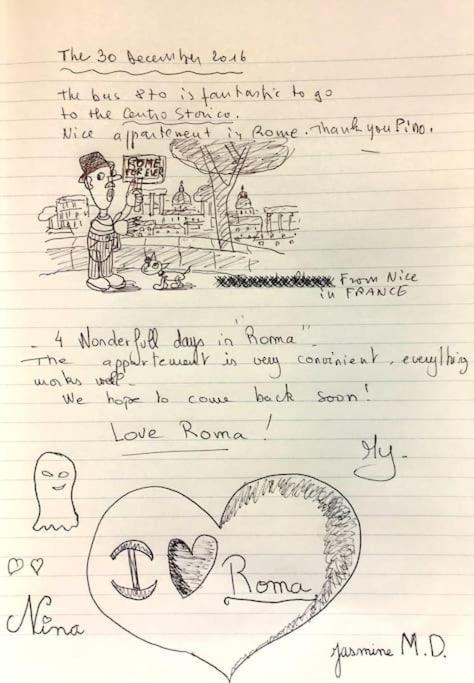 The 30 December 2016
The bus 870 is fantastic to go
to the Centro Storico.
Nice appartement in Rome. Thank you Pino.
ROME
FOR EVER
From Nice
in FRANCE
- 4 Wonderfull days in "Roma"
The appartement is very convinient, everything
works well.
We hope to come back soon!
Love Roma!
I
Roma
Nina
Jasmine M.D.